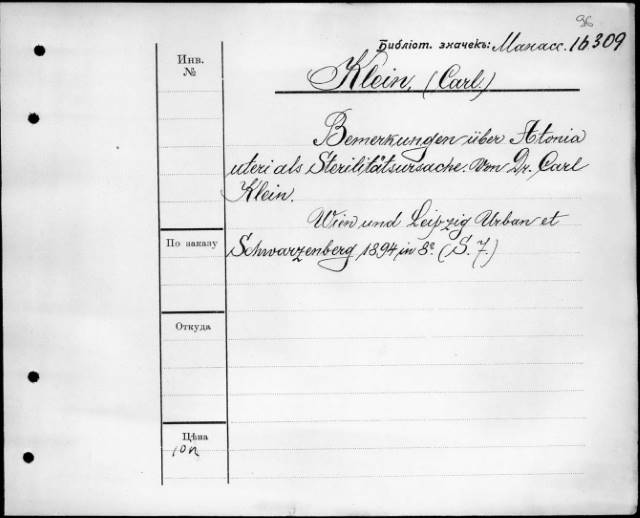 96
Библіот. значекъ: Манасс. 16309
Инв.
№
Klein, (Carl.)
Bemerkungen über Atonia
uteri als Sterilitätsursache. Von Dr. Carl
Klein.
Wien und Leipzig Urban et
Schwarzenberg 1894 in 8º. (S. 7.)
По заказу
Откуда
Цѣна